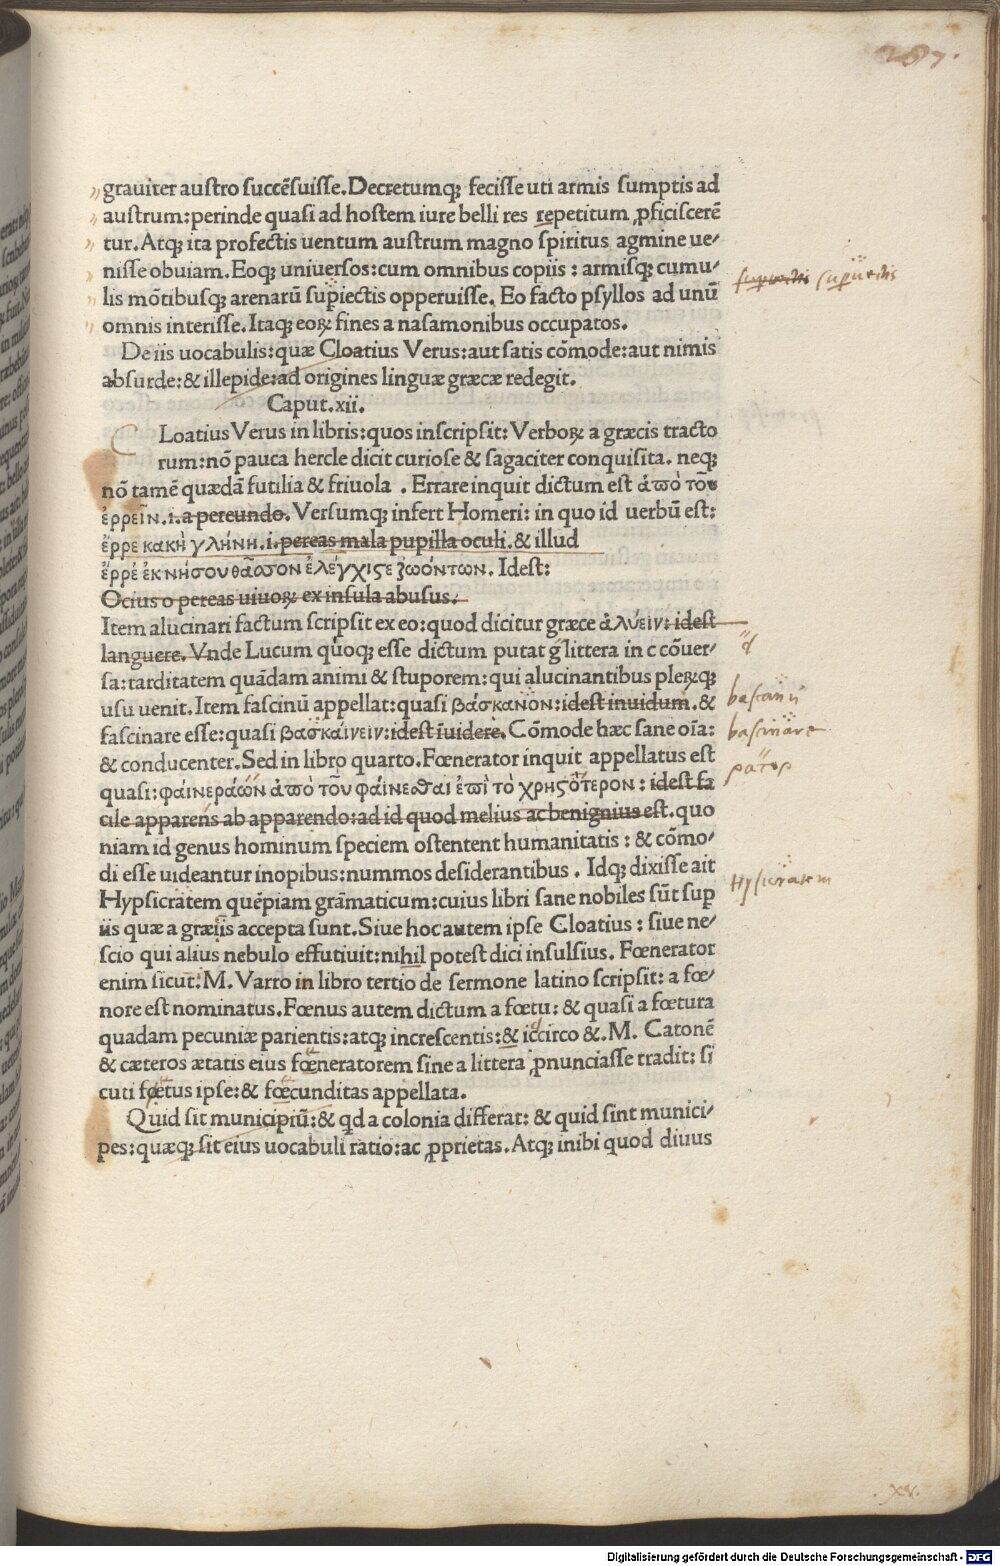 287.
grauiter austro succēsuisse. Decretumq; fecisse uti armis sumptis ad
austrum: perinde quasi ad hostem iure belli res repetitum ꝓficiscerē
tur. Atq; ita profectis uentum austrum magno spiritus agmine ue⸗
nisse obuiam. Eoq; uniuersos: cum omnibus copiis: armisq; cumu⸗
lis mōtibusq; arenarū supiectis opperuisse. Eo facto psyllos ad unū
omnis interisse. Itaq; eoꝝ fines a nasamonibus occupatos.
De iis uocabulis: quæ Cloatius Verus: aut satis cōmode: aut nimis
absurde: & illepide: ad origines linguæ græcæ redegit.
Caput. xii.
C Loatius Verus in libris: quos inscripsit: Verboꝝ a græcis tracto
rum: nō pauca hercle dicit curiose & sagaciter conquisita. neq;
nō tamē quædā futilia & friuola. Errare inquit dictum est ἀπὸ του
ἐρρεῖν. i. a pereundo. Versumq; infert Homeri: in quo id uerbū est:
ἐρρε κακὴ γλήνη. i. pereas mala pupilla oculi. & illud
ἐρρέ ἐκ νήσου θᾶσσον ἐλέγχιςε ζωόντων. Idest:
Ocius o pereas uiuoꝝ ex insula abusus.
Item alucinari factum scripsit ex eo: quod dicitur græce ἀλύειν: idest
languere. Vnde Lucum quoq; esse dictum putat g littera in c cōuer⸗
sa: tarditatem quādam animi & stuporem: qui alucinantibus pleꝝq;
usu uenit. Item fascinū appellat: quasi βάσκανον: idest inuidum. &
fascinare esse: quasi βασκάινειν: idest īuidere. Cōmode hæc sane oīa:
& conducenter. Sed in libro quarto. Fœnerator inquit appellatus est
quasi: φαινεράων ἀπὸ τοῦ φάινεσθαι ἐπὶ τὸ χρηςότερον: idest fa
cile apparens ab apparendo: ad id quod melius ac benignius est. quo
niam id genus hominum speciem ostentent humanitatis: & cōmo⸗
di esse uideantur inopibus: nummos desiderantibus. Idq; dixisse ait
Hypsicratem quēpiam grāmaticum: cuius libri sane nobiles sūt sup
iis quæ a græiis accepta sunt. Siue hoc autem ipse Cloatius: siue ne⸗
scio qui alius nebulo effutiuit: nihil potest dici insulsius. Fœnerator
enim sicut: M. Varro in libro tertio de sermone latino scripsit: a fœ⸗
nore est nominatus. Fœnus autem dictum a fœtu: & quasi a fœtura
quadam pecuniæ parientis: atq; increscentis: & iccirco &. M. Catonē
& cæteros ætatis eius fœneratorem sine a littera ꝓnunciasse tradit: si
cuti fœtus ipse: & fœcunditas appellata.
Quid sit municipiū: & qd a colonia differat: & quid sint munici⸗
pes: quæq; sit eius uocabuli ratio: ac ꝓprietas. Atq; inibi quod diuus
bascanū
bascinare
ρατορ
Hypsicratem
xv.
Digitalisierung gefördert durch die Deutsche Forschungsgemeinschaft - DFG